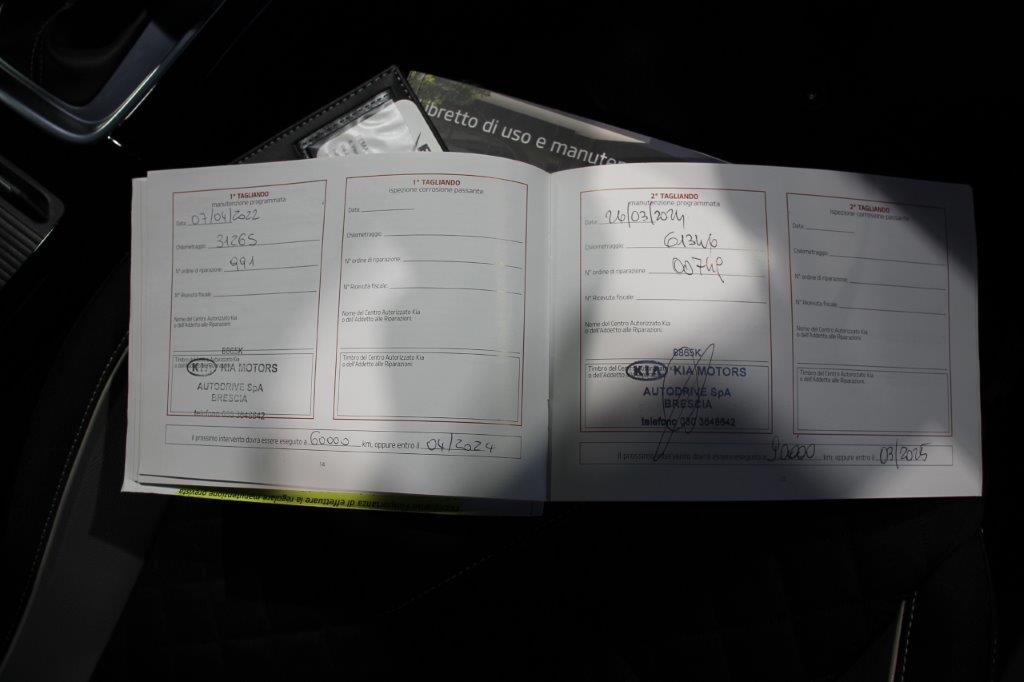 libretto di uso e manuten
1° TAGLIANDO
manutenzione programmata
Data 07/04/2022
Chilometraggio: 31265
N° ordine di riparazione: 991
N° Ricevuta fiscale:
Nome del Centro Autorizzato Kia
o dell'Addetto alle Riparazioni:
8865K
Timbro del Centro Autorizzato Kia
o dell'Addetto alle Riparazioni:
KIA KIA MOTORS
AUTODRIVE SpA
BRESCIA
telefono 030 3648642
1° TAGLIANDO
ispezione corrosione passante
Data:
Chilometraggio:
N° ordine di riparazione:
N° Ricevuta fiscale:
Nome del Centro Autorizzato Kia
o dell'Addetto alle Riparazioni:
Timbro del Centro Autorizzato Kia
o dell'Addetto alle Riparazioni:
Il prossimo intervento dovrà essere eseguito a 60000 km, oppure entro il 04/2024
14
2° TAGLIANDO
manutenzione programmata
Data: 26/03/2024
Chilometraggio: 61346
N° ordine di riparazione: 00749
N° Ricevuta fiscale:
Nome del Centro Autorizzato Kia
o dell'Addetto alle Riparazioni:
8865K
Timbro del Centro Autorizzato Kia
o dell'Addetto alle Riparazioni:
KIA KIA MOTORS
AUTODRIVE SpA
BRESCIA
telefono 030 3648642
2° TAGLIANDO
ispezione corrosione passante
Data:
Chilometraggio:
N° ordine di riparazione:
N° Ricevuta fiscale:
Nome del Centro Autorizzato Kia
o dell'Addetto alle Riparazioni:
Timbro del Centro Autorizzato Kia
o dell'Addetto alle Riparazioni:
Il prossimo intervento dovrà essere eseguito a 90000 km, oppure entro il 03/2025
l'importanza di effettuare la regolare manutenzione previst